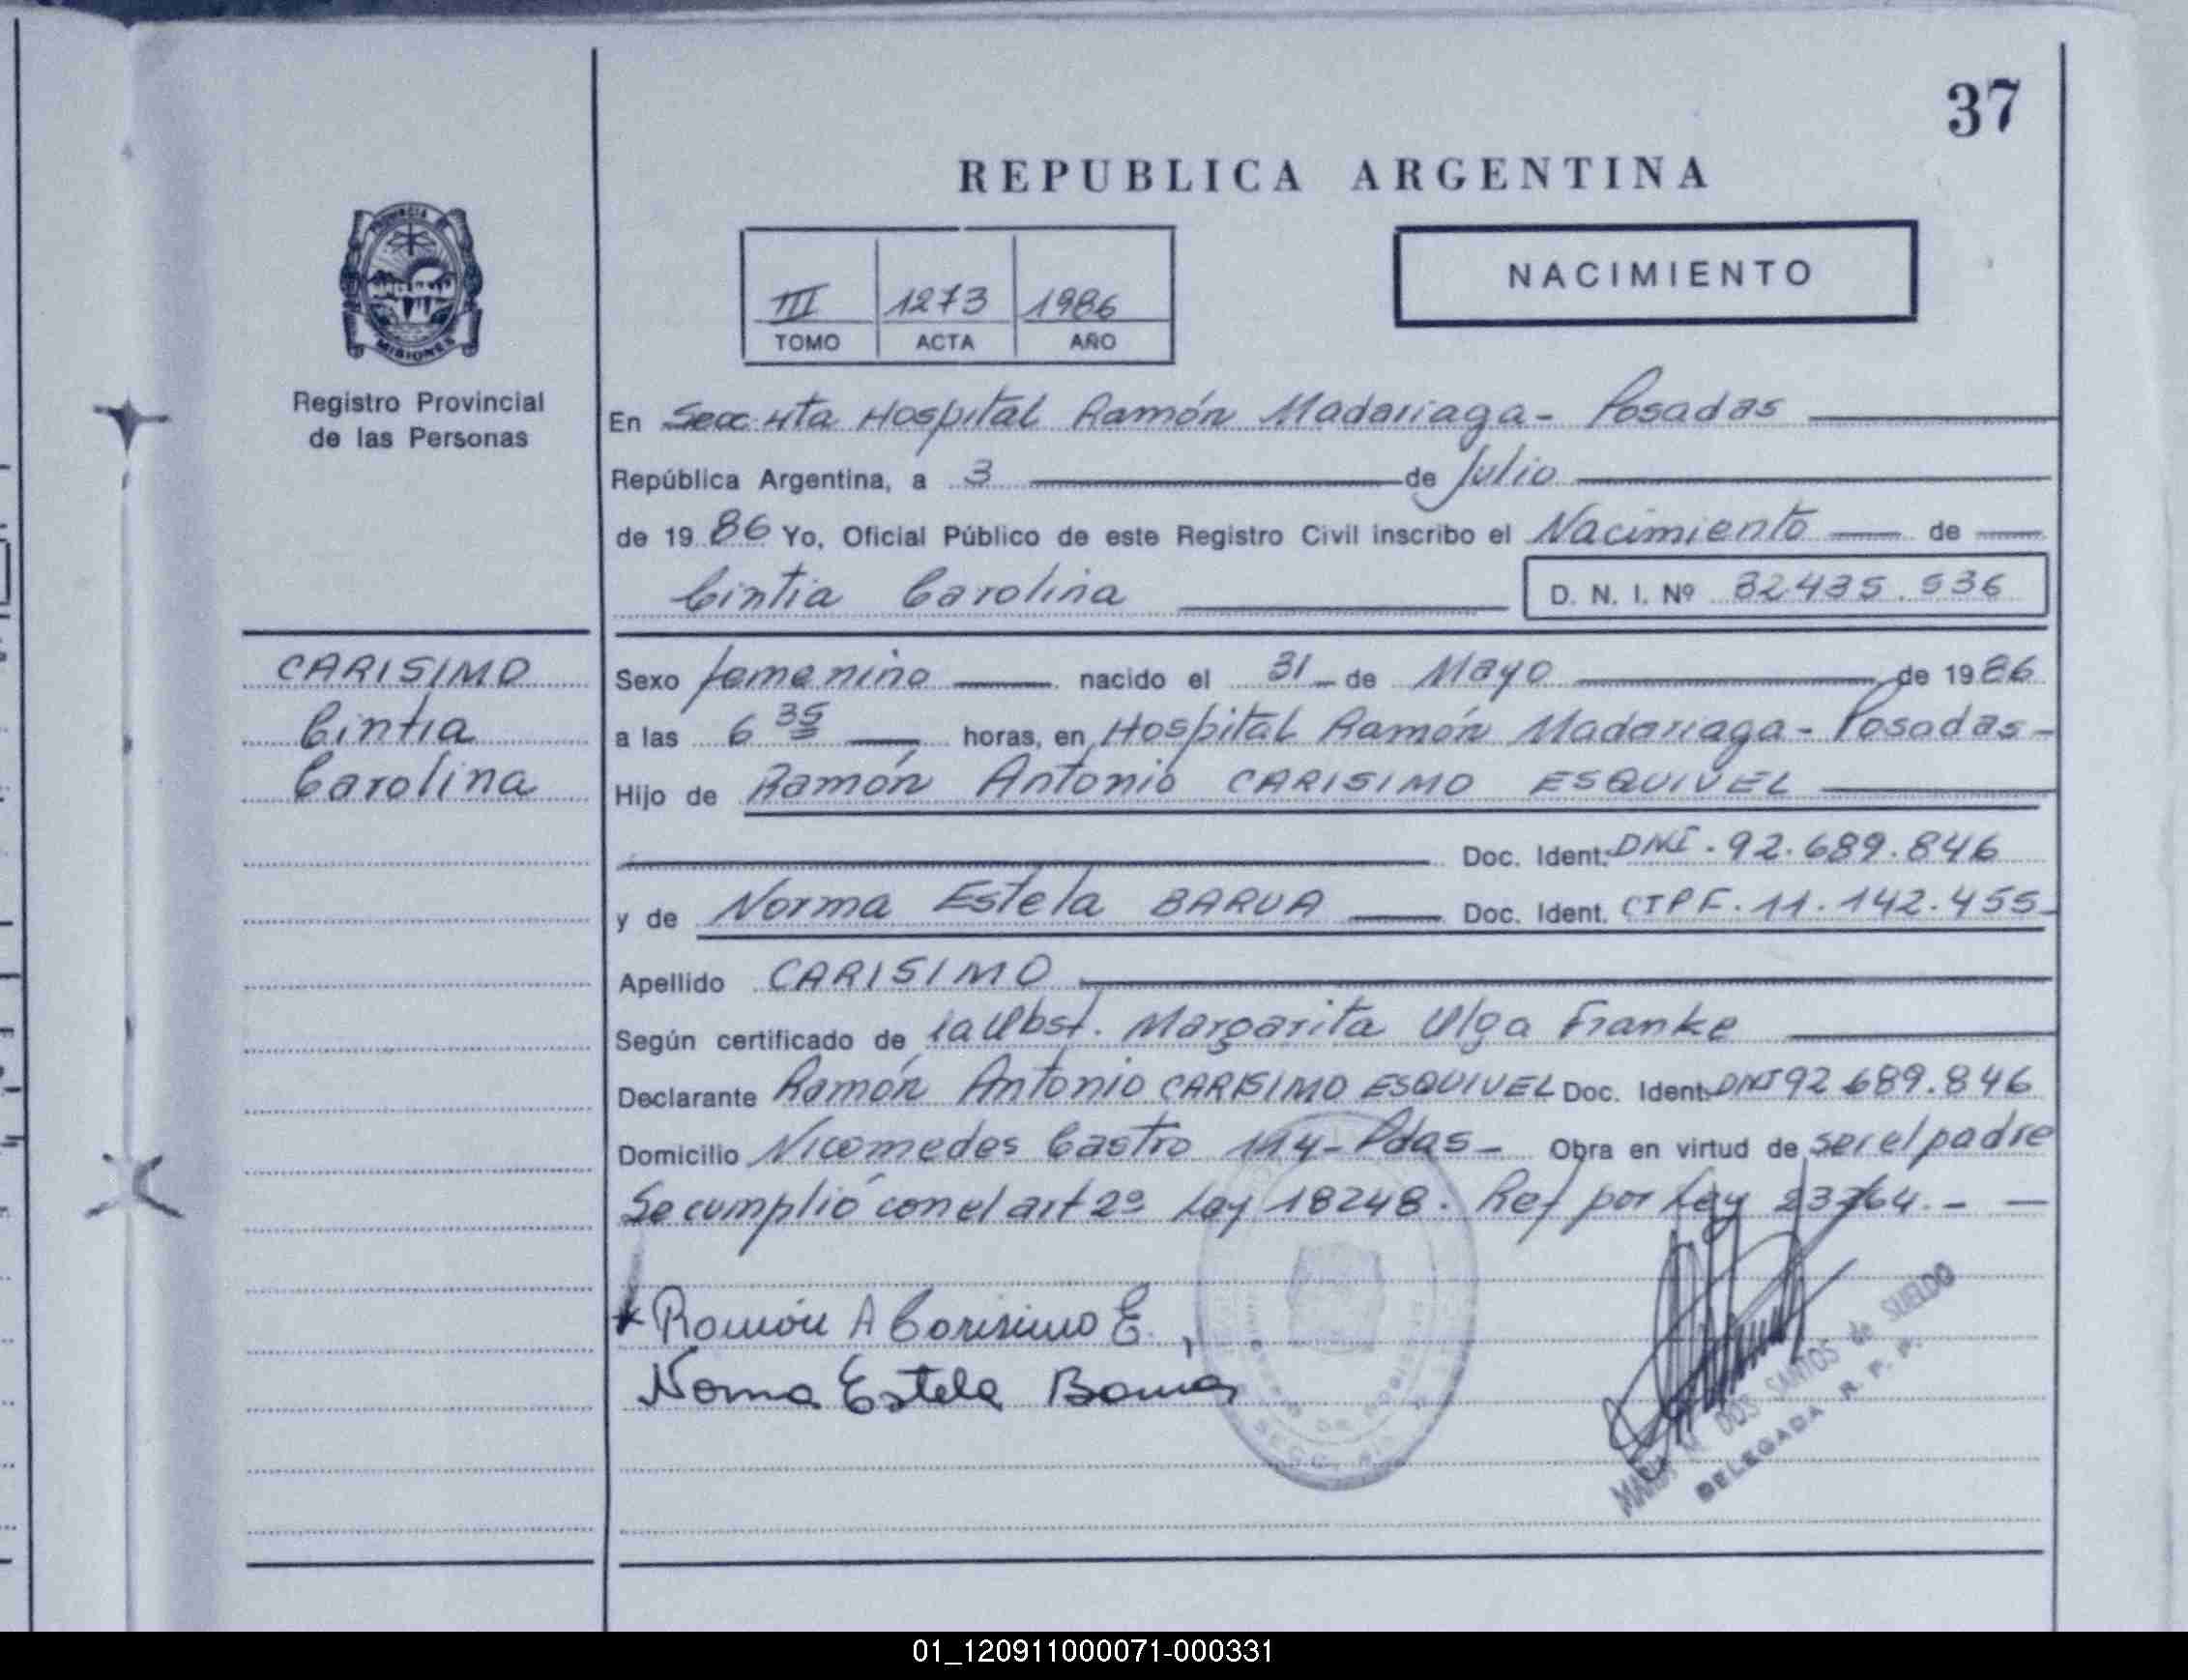 37
REPUBLICA ARGENTINA
PROVINCIA DE
MISIONES
Registro Provincial
de las Personas
III 1273 1986
TOMO ACTA AÑO
NACIMIENTO
En Secc. 4ta Hospital Ramón Madariaga - Posadas
República Argentina, a 3 de Julio
de 1986 Yo, Oficial Público de este Registro Civil inscribo el Nacimiento de
Cintia Carolina D. N. I. Nº 32435.536
CARISIMO
Cintia
Carolina
Sexo femenino nacido el 31 de Mayo de 1986
a las 6 35 horas, en Hospital Ramón Madariaga - Posadas -
Hijo de Ramón Antonio CARISIMO ESQUIVEL
Doc. Ident. DNI. 92.689.846
y de Norma Estela BARUA Doc. Ident. CIPF. 11.142.455
Apellido CARISIMO
Según certificado de la Obst. Margarita Olga Franke
Declarante Ramón Antonio CARISIMO ESQUIVEL Doc. Ident. DNI 92 689.846
Domicilio Nicomedes Castro 114 - Pdas - Obra en virtud de ser el padre
Se cumplió con el art 2º Ley 18248. Ref por Ley 23264. - -
Ramón A Carisimo E.
Norma Estela Barua
DOS SANTOS de SUELDO
DELEGADA R. P. P.
01_120911000071-000331